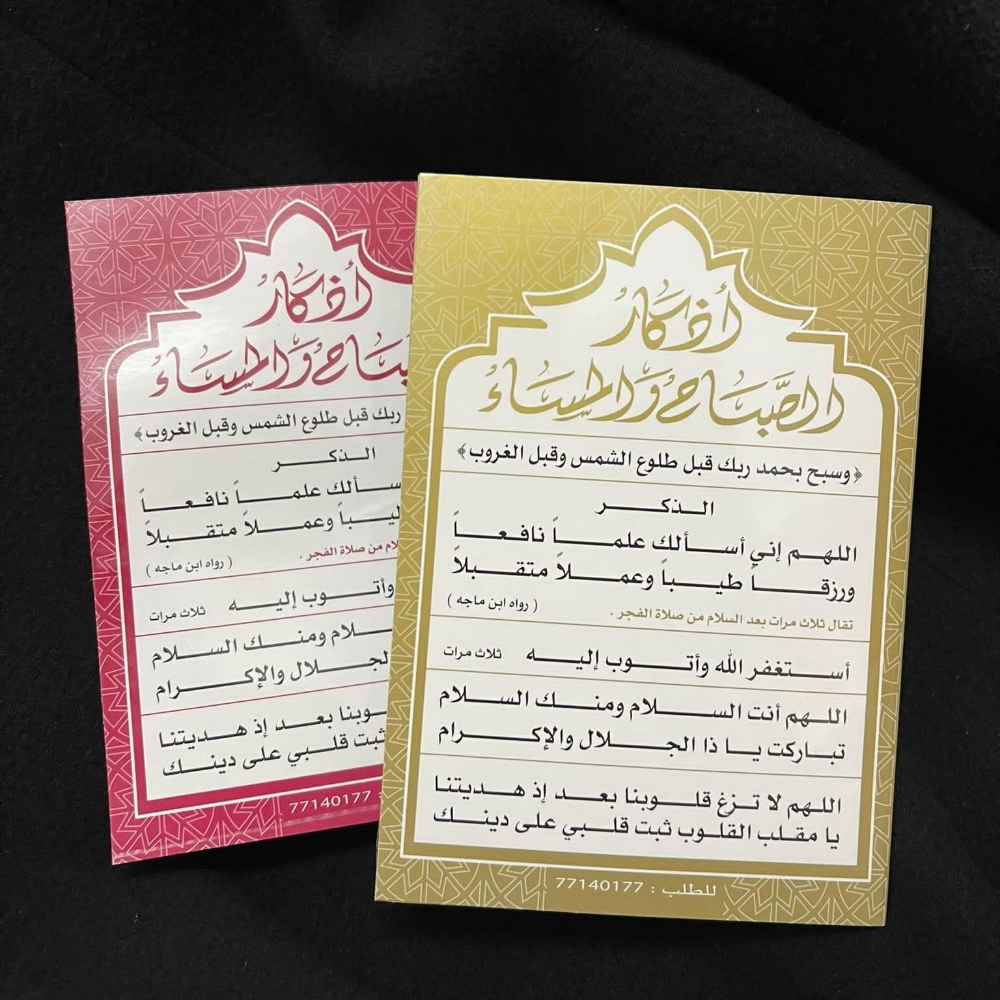 أذكار
الصَّبَاح وَالمسَاء
﴿وسبح بحمد ربك قبل طلوع الشمس وقبل الغروب﴾
الذكر
اللهم إني أسألك علماً نافعاً
ورزقاً طيباً وعملاً متقبلاً
تقال ثلاث مرات بعد السلام من صلاة الفجر . ( رواه ابن ماجه )
أستغفر الله وأتوب إليه ثلاث مرات
اللهم أنت السلام ومنك السلام
تباركت يا ذا الجلال والإكرام
اللهم لا تزغ قلوبنا بعد إذ هديتنا
يا مقلب القلوب ثبت قلبي على دينك
للطلب : 77140177
أذكار
وَالمسَاء
ربك قبل طلوع الشمس وقبل الغروب﴾
الذكر
علماً نافعاً
وعملاً متقبلاً
من صلاة الفجر . ( رواه ابن ماجه )
وأتوب إليه ثلاث مرات
ومنك السلام
والإكرام
بعد إذ هديتنا
ثبت قلبي على دينك
: 77140177